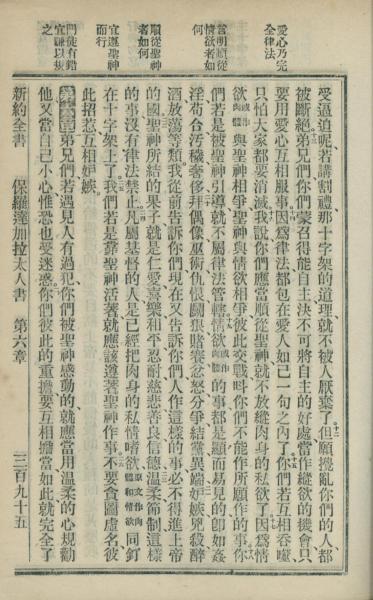 愛心乃完
全律法
當明順從
情欲者如
何
順從聖神
者如何
宜遵聖神
而行
門徒有錯
宜謙以挾
之
受逼迫呢若講割禮那十字架的道理就不被人厭棄了但願攪亂你們的人都
被斷絕弟兄們你們蒙召得能自主決不可將自主的好處當作縱欲的機會只
要用愛心互相服事因爲律法都包在愛人如己一句之內了你們若互相吞噬
只怕大家都要消滅我說你們應當順從聖神就不放縱肉身的私欲了因爲情
欲與聖神相爭聖神與情欲相爭彼此交戰呌你們不能作所願作的事你
們若是被聖神引導就不屬律法管轄情欲的事都是顯而易見的卽如姦
淫苟合污穢奢侈拜偶像巫術仇恨鬬狠賭賽忿怒分爭結黨異端妒嫉兇殺醉
酒放蕩等類我從前吿訴你們現在又吿訴你們人作這樣的事必不得進上帝
的國聖神所結的果子就是仁愛喜樂和平忍耐慈悲善良信德溫柔節制這樣
的事沒有律法禁止凡屬基督的人是已經把肉身的私情嗜欲同釘
在十字架上了我們若是靠聖神活著就應該遵著聖神作事不要貪圖虛名彼
此招惹互相妒嫉
弟兄們若遇見人有過犯你們被聖神感動的就應當用溫柔的心規勸
他又當自己小心惟恐也受迷惑你們彼此的重擔要互相擔當如此就完全了
新約全書 保羅達加拉太人書 第六章 三百九十五